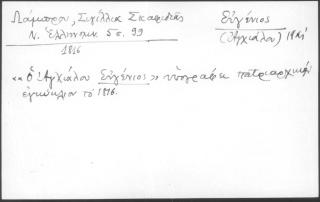 Λάμπρου, Σιγίλλια Σκαφιδᾶς
Ν. Ἑλληνομν. 5 σ. 99
1816
Εὐγένιος
(Ἀγχιάλου)
«Ὁ Ἀγχιάλου Εὐγένιος» ὑπογράφει πατριαρχικήν
ἐγκύκλιον τό 1816.